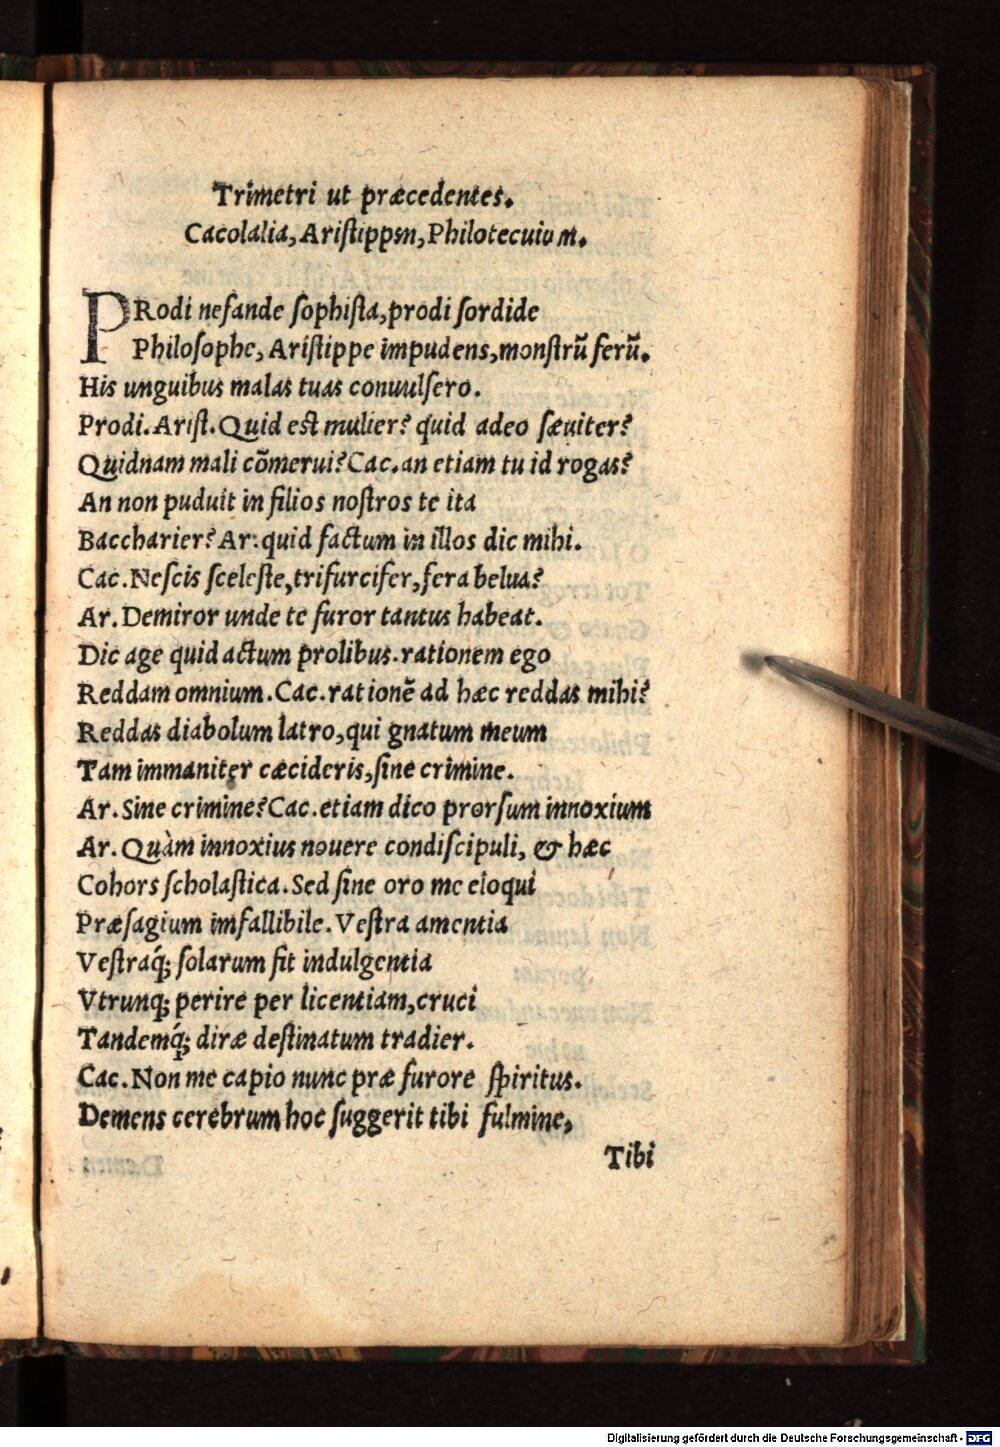 Trimetri ut præcedentes.
Cacolalia, Ariſtippsn, Philotecuium.
PRodi nefande ſophiſta, prodi ſordide
Philoſophe, Ariſtippe impudens, monſtrũ ferũ.
His unguibus malas tuas conuulſero.
Prodi. Ariſt. Quid est mulier? quid adeo ſæuiter?
Quidnam mali cõmerui? Cac. an etiam tu id rogas?
An non puduit in filios noſtros te ita
Baccharier? Ar: quid factum in illos dic mihi.
Cac. Neſcis ſceleſte, trifurcifer, fera belua?
Ar. Demiror unde te furor tantus habeat.
Dic age quid actum prolibus. rationem ego
Reddam omnium. Cac. rationẽ ad hæc reddas mihi?
Reddas diabolum latro, qui gnatum meum
Tam immaniter cæcideris, ſine crimine.
Ar. Sine crimine? Cac. etiam dico prorſum innoxium
Ar. Quàm innoxius nouere condiſcipuli, & hæc
Cohors ſcholaſtica. Sed ſine oro me eloqui
Præſagium imfallibile. Veſtra amentia
Veſtraq́; ſolarum fit indulgentia
Vtrunq; perire per licentiam, cruci
Tandemq́; diræ deſtinatum tradier.
Cac. Non me capio nunc præ furore ſpiritus.
Demens cerebrum hoc ſuggerit tibi fulmine,
Tibi
Digitalisierung gefördert durch die Deutsche Forschungsgemeinschaft - DFG